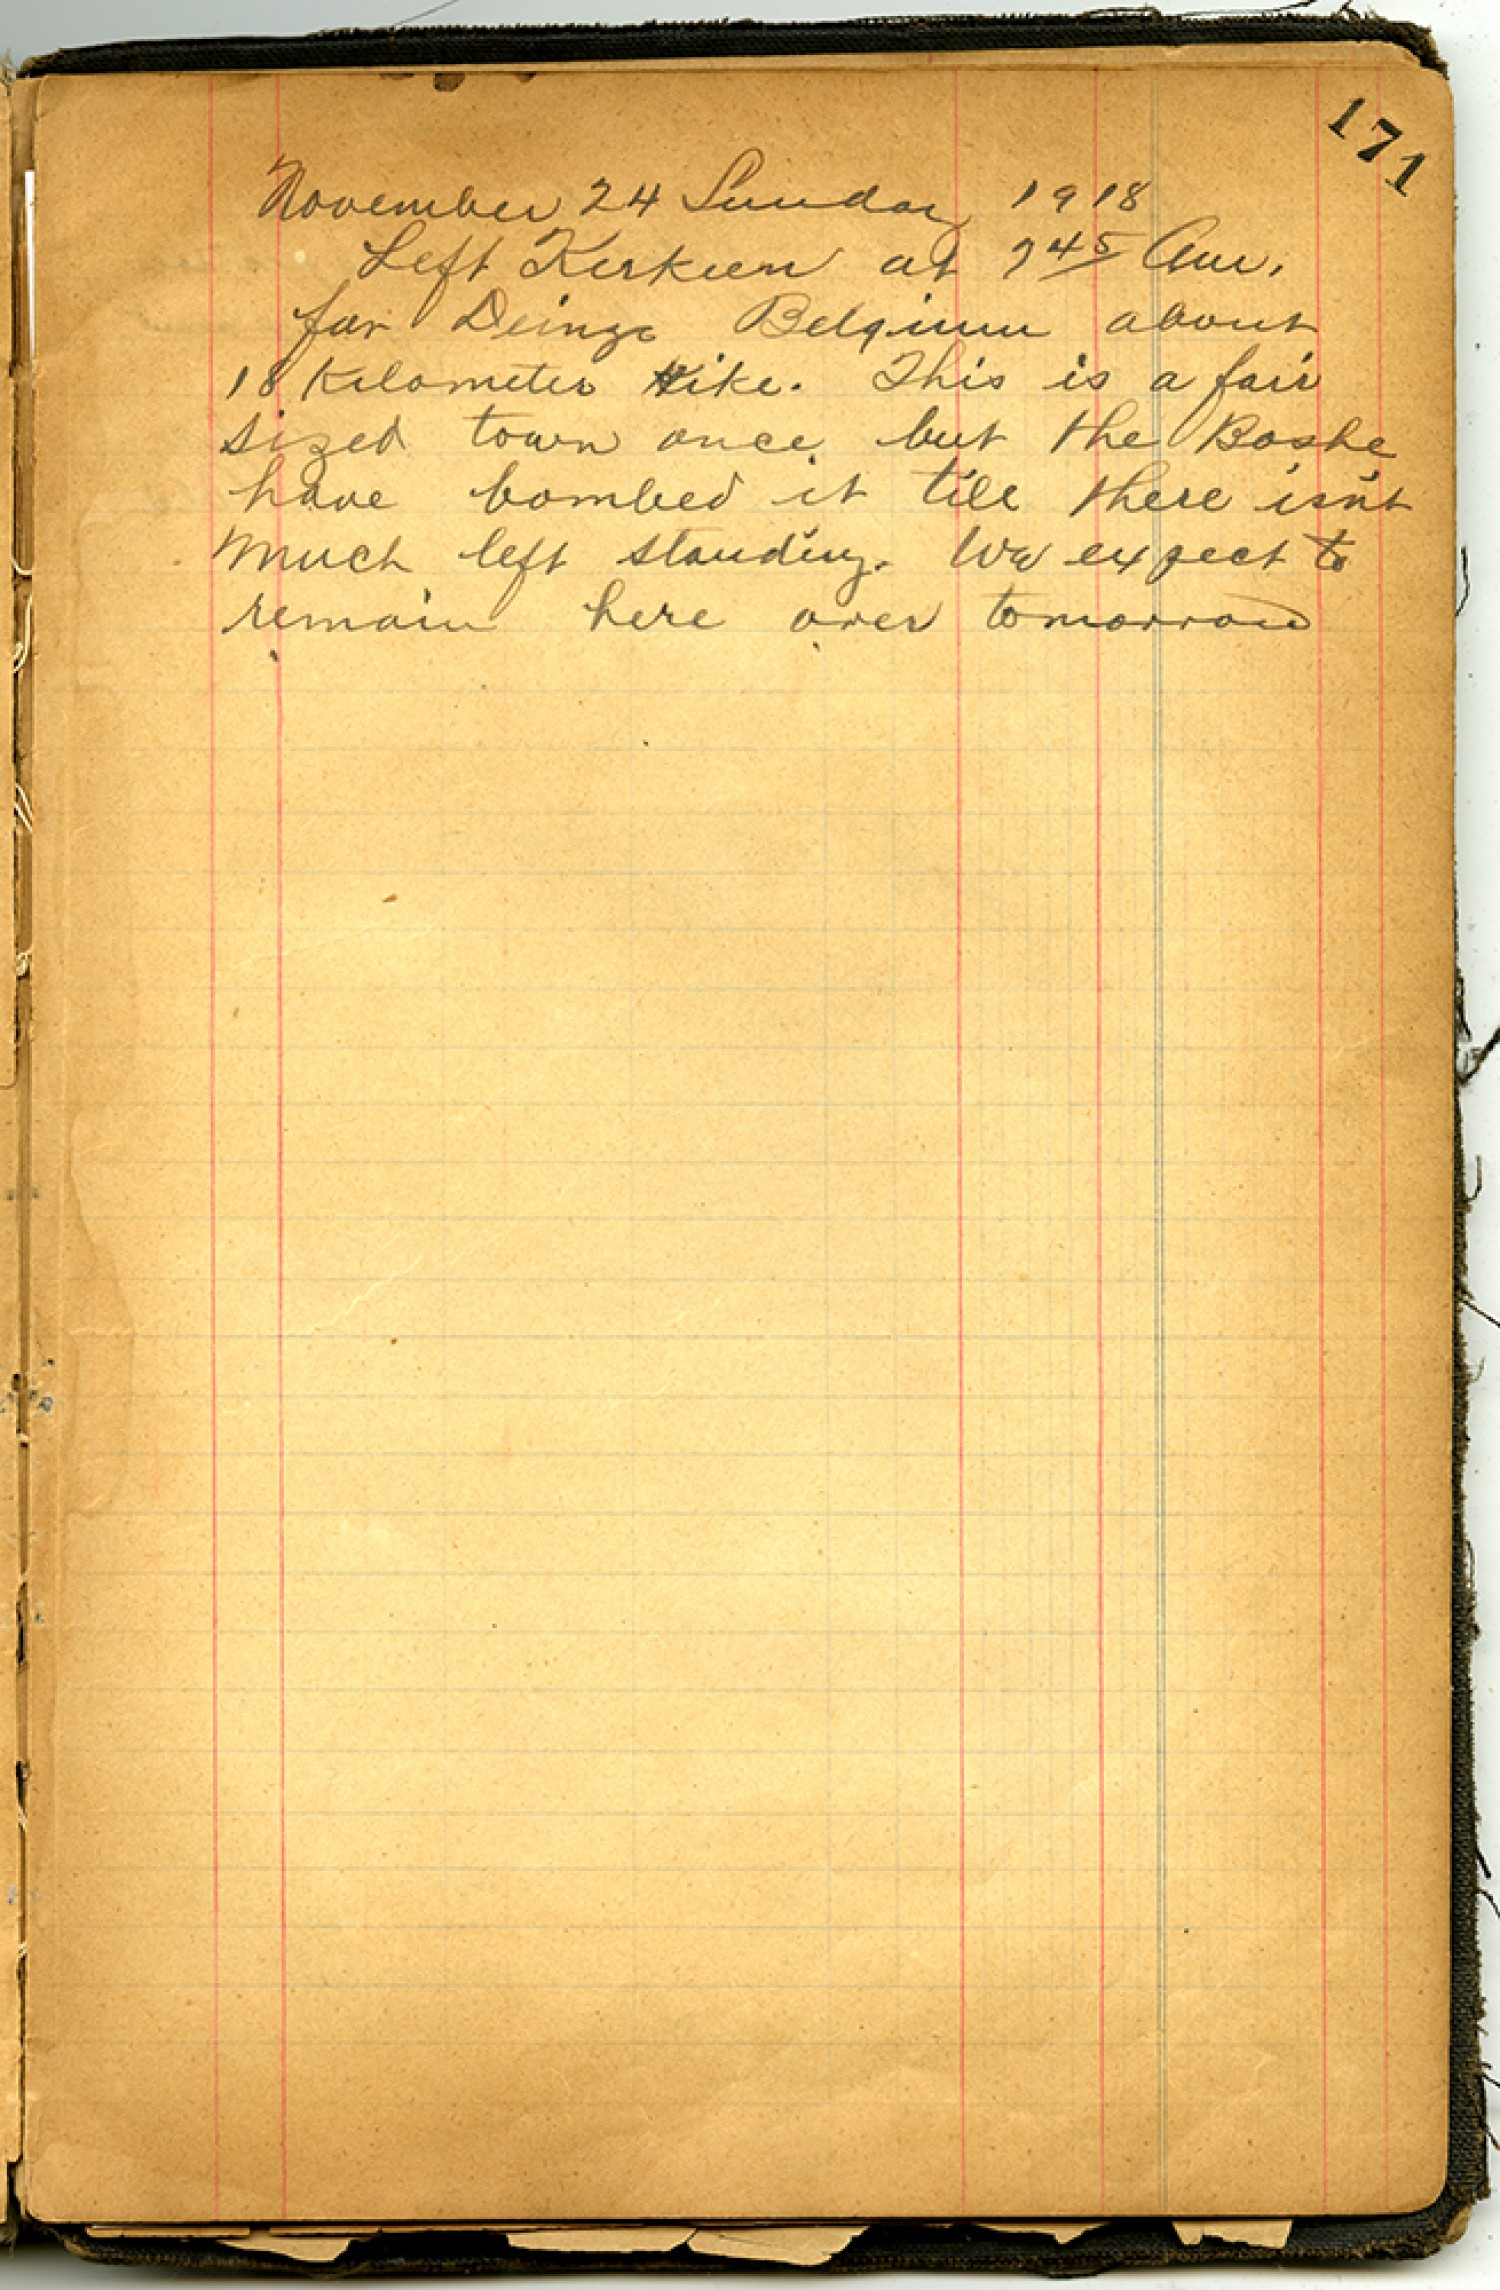 171
November 24 Sunday 1918
Left Kerkien at 7 45 Am.
for Deinze Belgium about
18 Kilometer Hike. This is a fair
sized town once but the Boshe
have bombed it till there isn't
much left standing. We expect to
remain here over tomorrow